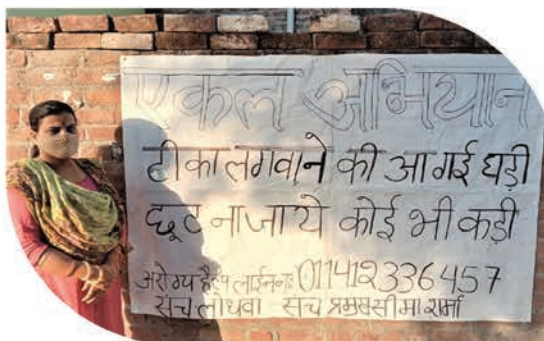 एकल अभियान
टीका लगवाने की आ गई घड़ी
छूट ना जाये कोई भी कड़ी
अरोग्य हैल्प लाईन नः 011412336457
संच लोधवा संच प्रमुख सीमा शर्मा